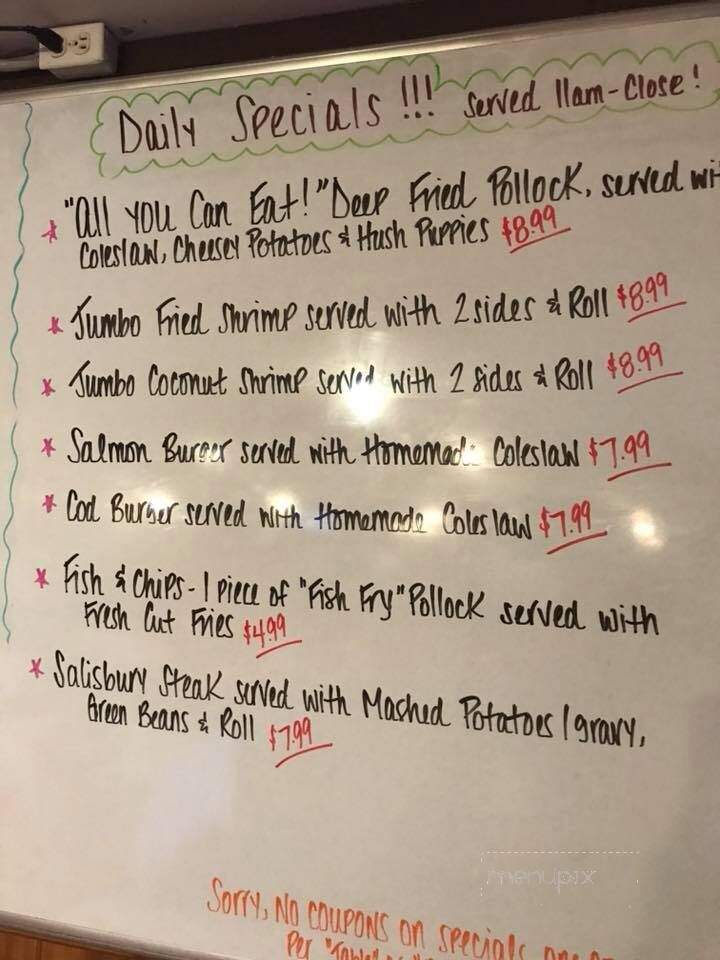 Daily Specials!!! Served 11am-Close!
* "All You Can Eat!" Deep Fried Pollock, served
Coleslaw, Cheesey Potatoes & Hush Puppies $8.99
* Jumbo Fried Shrimp served with 2 sides & Roll $8.99
* Jumbo Coconut Shrimp served with 2 sides & Roll $8.99
* Salmon Burger served with Homemade Coleslaw $7.99
* Cod Burger served with Homemade Coleslaw $7.99
* Fish & Chips - 1 piece of "Fish Fry" Pollock served with
Fresh Cut Fries $4.99
* Salisbury Steak served with Mashed Potatoes/gravy,
Green Beans & Roll $7.99
menupix
Sorry, No coupons on specials
Per